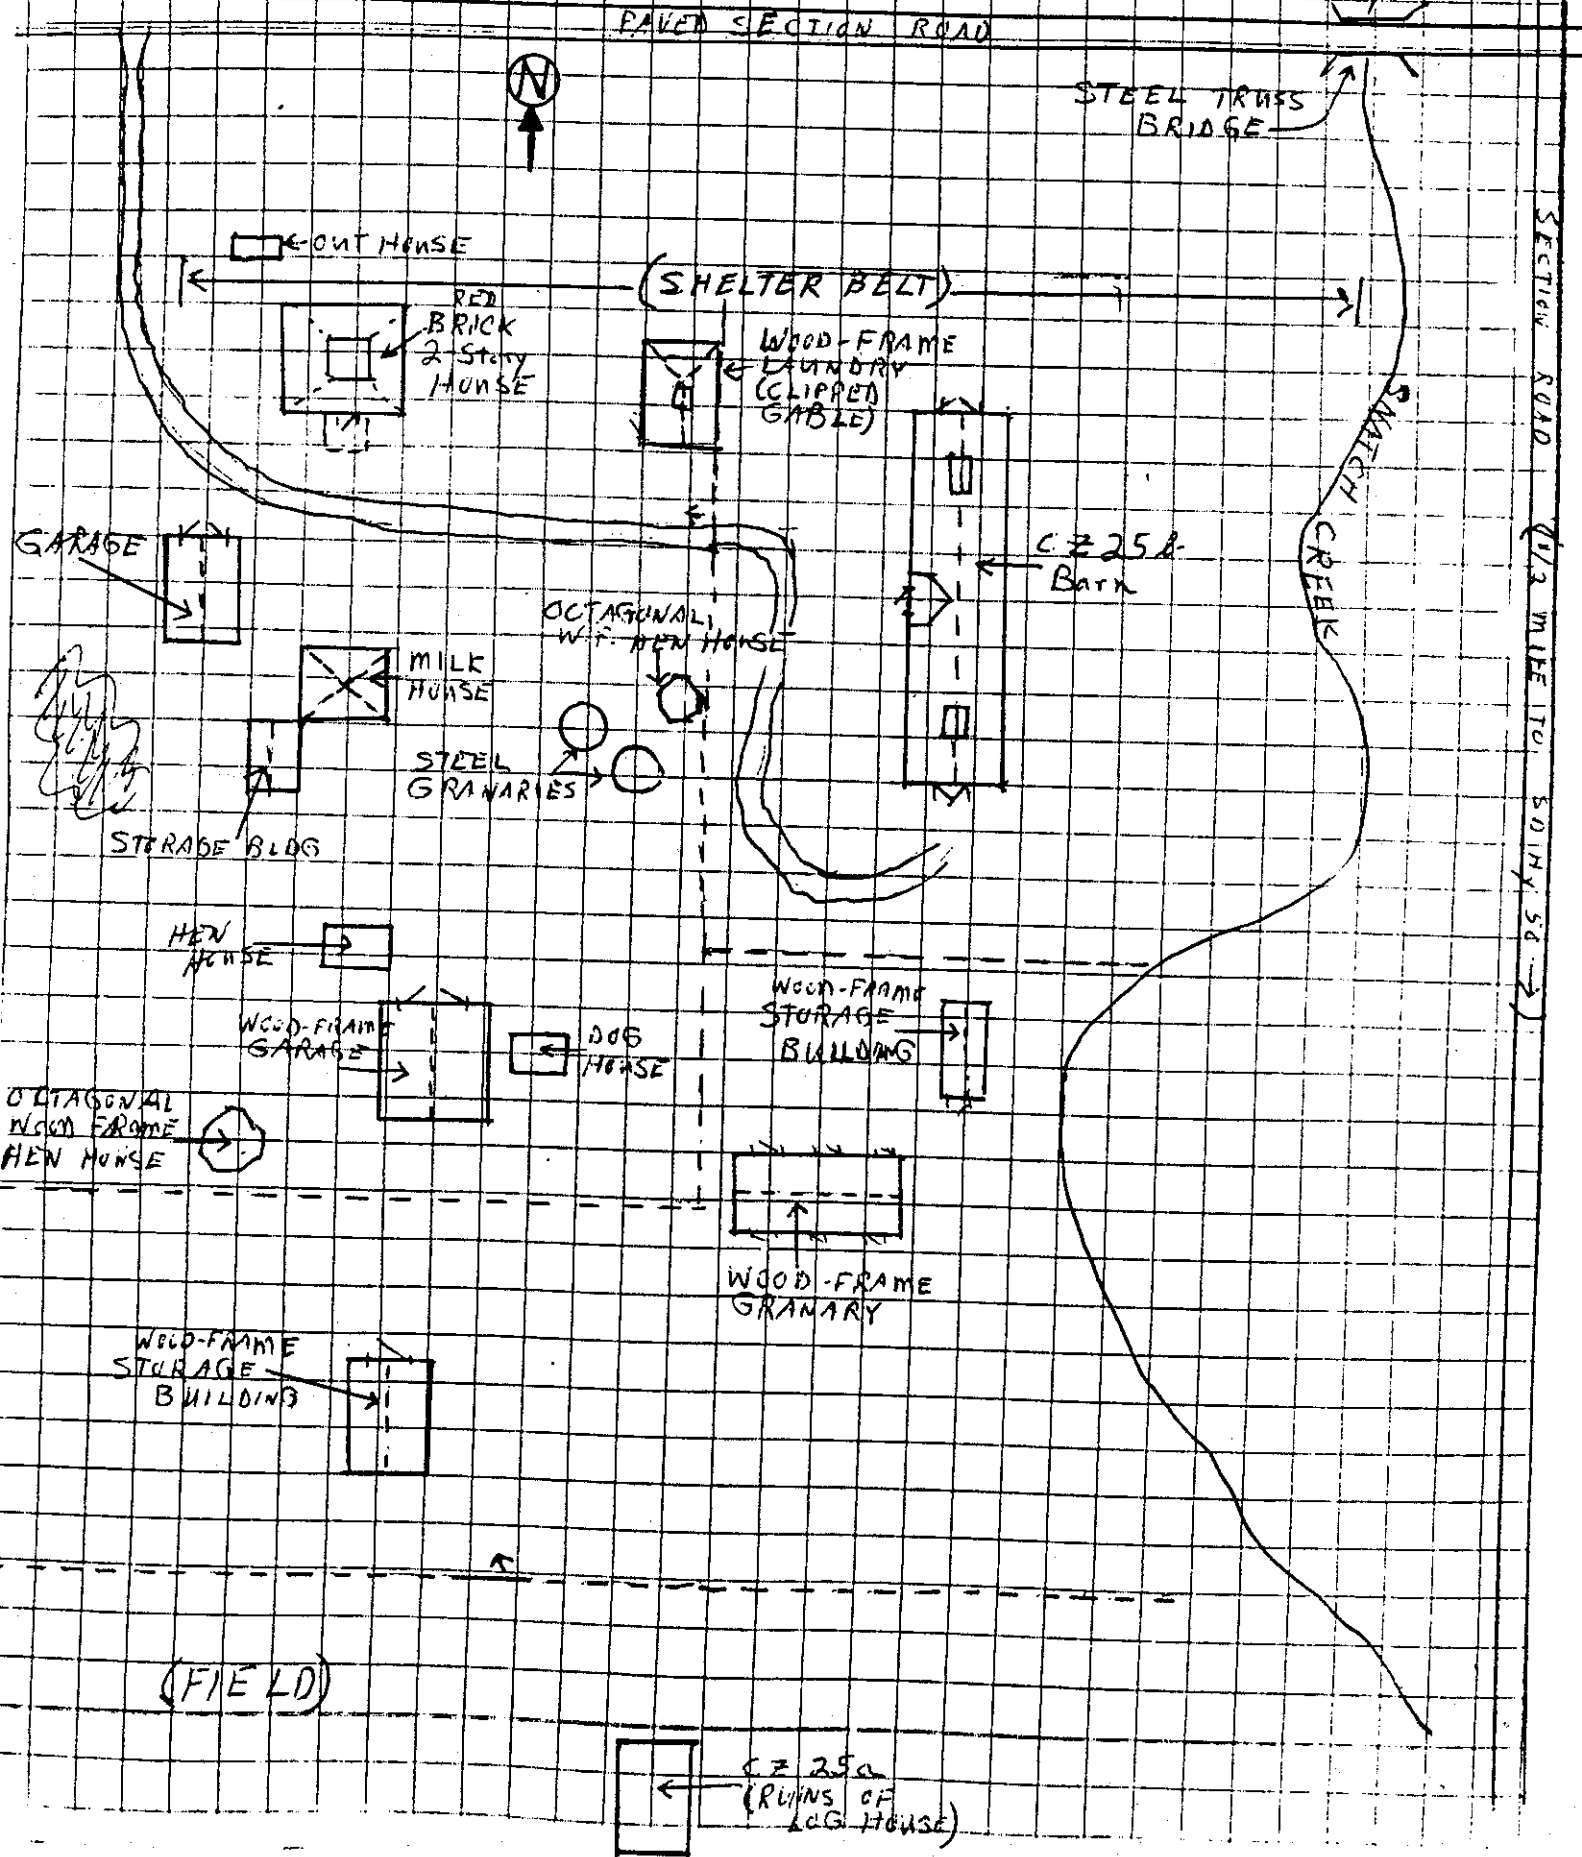 PAVED SECTION ROAD
N
STEEL TRUSS
BRIDGE
OUT HOUSE
(SHELTER BELT)
RED
BRICK
2-Story
HOUSE
WOOD-FRAME
LAUNDRY
(CLIPPED
GABLE)
SECTION ROAD (1 1/2 MILE TO
CREEK
GARAGE
CZ 25b
Barn
OCTAGONAL
W.F. HEN HOUSE
MILK
HOUSE
STEEL
GRANARIES
STORAGE BLDG
HEN
HOUSE
WOOD-FRAME
GARAGE
DOG
HOUSE
WOOD-FRAME
STORAGE
BUILDING
OCTAGONAL
WOOD FRAME
HEN HOUSE
WOOD-FRAME
GRANARY
WOOD-FRAME
STORAGE
BUILDING
(FIELD)
CZ 25a
(RUINS OF
LOG HOUSE)